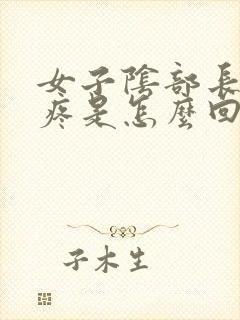 女子陰部長
疼是怎麼回
子木生